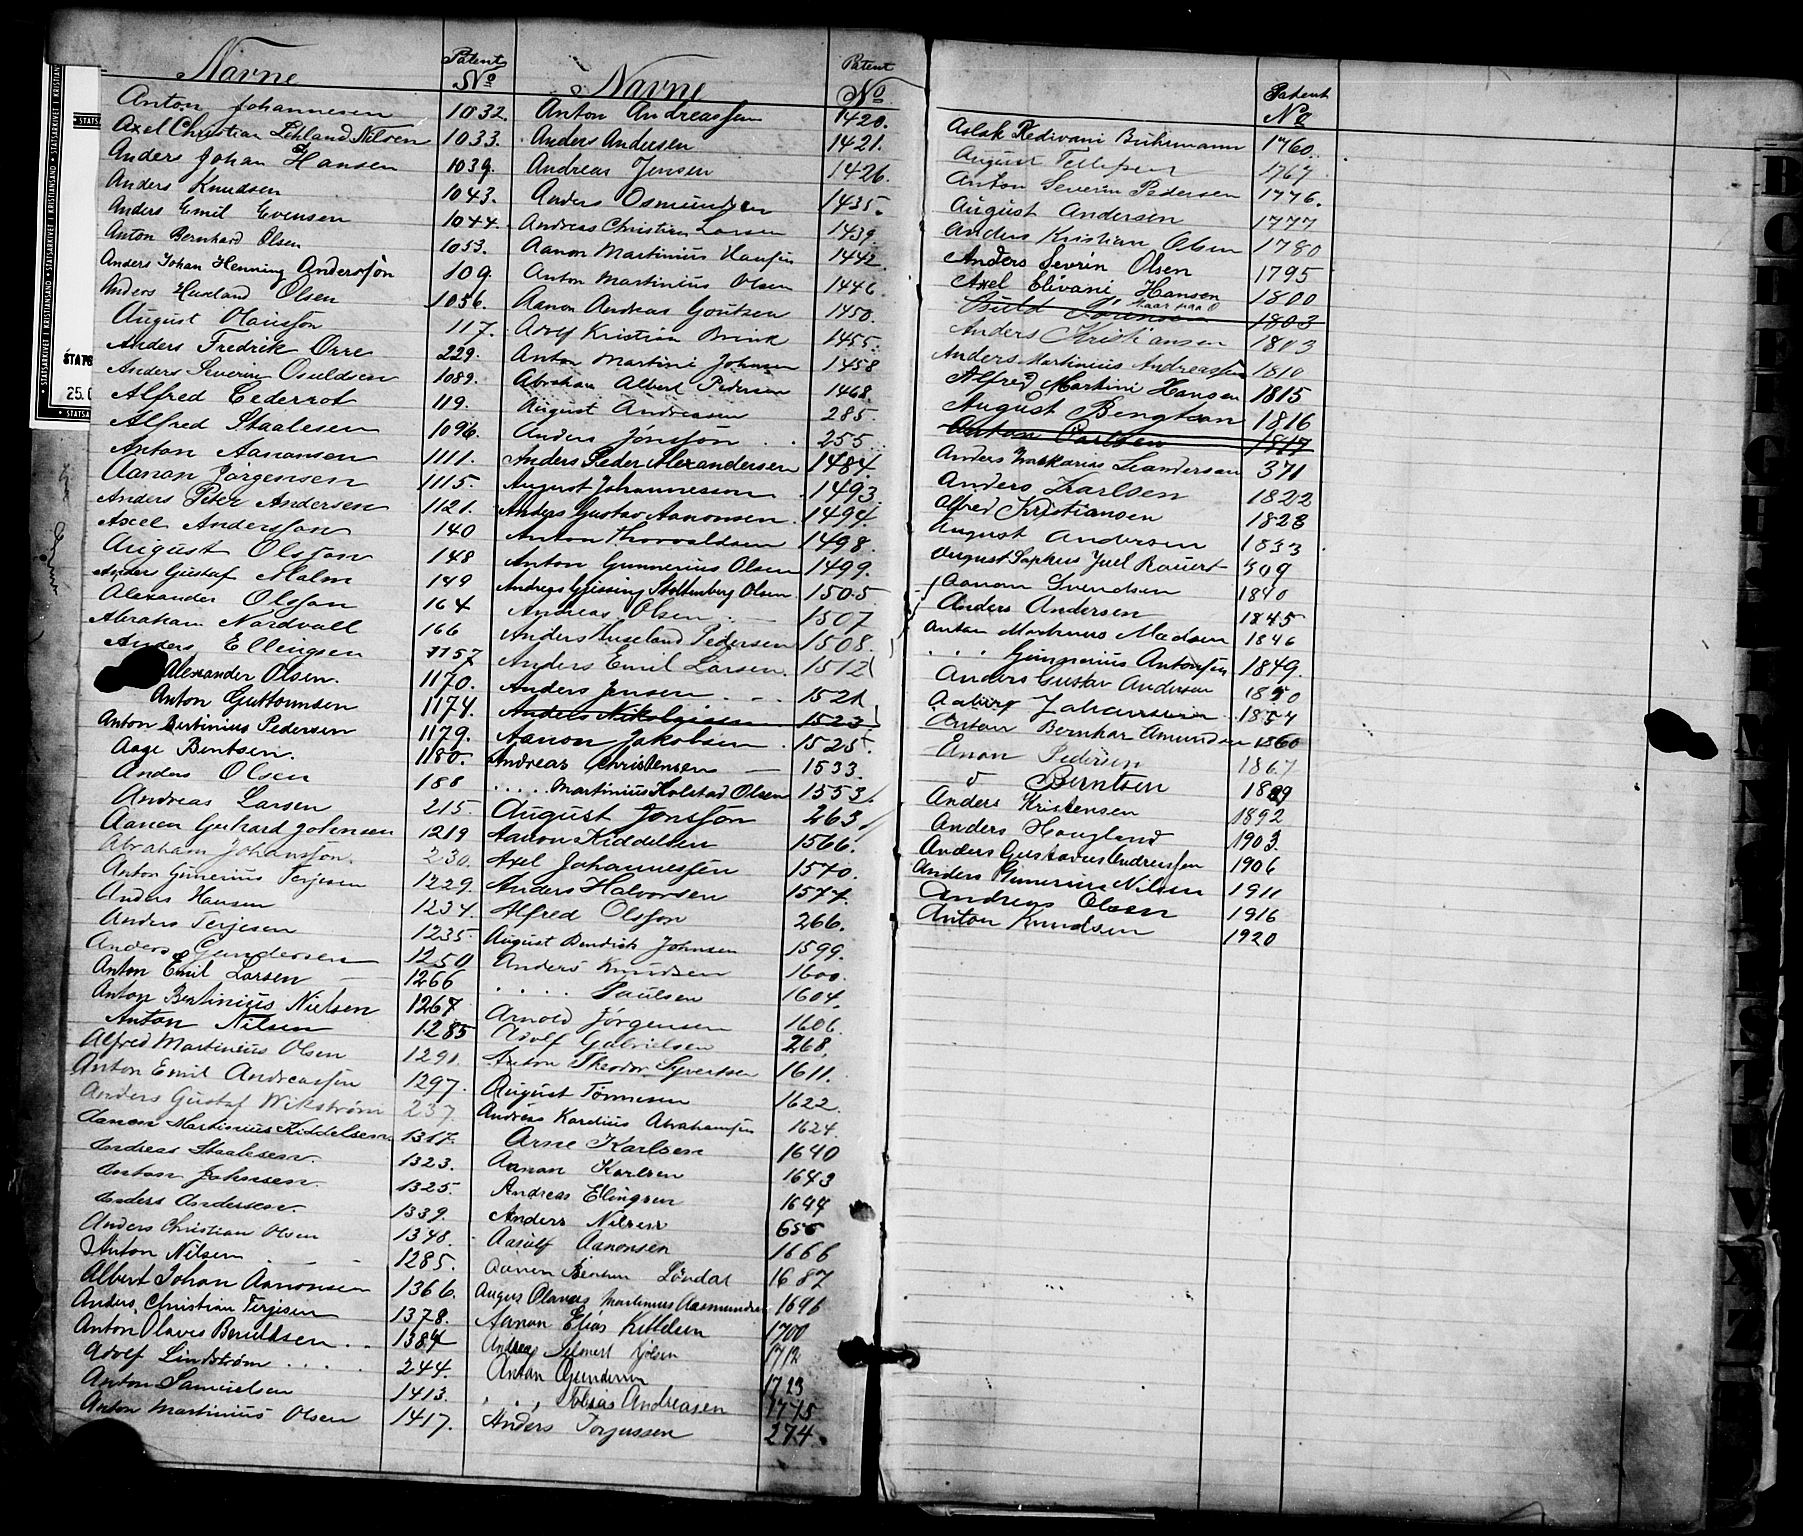 Navne
Patent
No
Anton Johannesen 1032.
Axel Christian Nilsen 1033.
Anders Johan Hansen 1039.
Anders Knudsen 1043.
Anders Emil Evensen 1044.
Anton Bernhard Olsen 1053.
Anders Johan Henning Andersson 109.
Anders Olsen 1056.
August 117.
Anders Fredrik Orre 229.
Anders Severin Osuldsen 1089.
Alfred Cederrot 119.
Alfred Staalesen 1096.
Anton Aanonsen 1111.
Aanon Jörgensen 1115.
Anders Peter Andersen 1121.
Axel Andersson 140
August Olsson 148
Anders Gustaf Malm 149
Alexander Olsson 164
Abraham Nordvall 166
Anders Ellingsen 1157
Alexander Olsen. 1170.
Anton Guttormsen 1174.
Anton Bertinius Pedersen 1179.
Aage Bentsen. 1180.
Anders Olsen 188
Andreas Larsen 215.
Aanen Gerhard Johnsen 1219
Abraham Johansson. 230.
Anton Gunerius Terjesen 1229.
Anders Hansen 1234.
Anders Terjesen 1235.
Anders Gundersen 1250
Anton Emil Larsen 1266
Anton Bertinius Nielsen 1267
Anton Nilsen 1285
Alfred Martinius Olsen 1291.
Anton Emil Andreassen 1297.
Anders Gustaf Wikström 237
Aanon Martinius Kiddelsen 1317.
Andreas Staalesen. 1323.
Anton Johnsen. 1325.
Anders Andersen. 1339.
Anders Christian Olsen 1348.
Anton Nilsen 1285.
Albert Johan Aanonsen 1366.
Anders Christian Terjesen 1378.
Anton Olaves Beruldsen 1384
Adolf Lindström 244.
Anton Samuelsen 1413.
Anton Martinius Olsen 1417.
Navne
Patent
No
Anton Andreassen 1420.
Anders Andersen 1421.
Andreas Jensen 1426.
Anders Osmundsen 1435.
Andreas Christian Larsen 1439.
Aanon Martinius Hansen 1442.
Anton Martinius Olsen 1446.
Aanon Andreas 1450.
Adolf Kristian Brink 1455.
Anton Martini Johnsen 1458
Abraham Albert Pedersen 1468.
August Andreasen 285.
Anders Jönsson 255
Anders Peder Alexandersen 1484.
August Johannessen 1493.
Anders Gustav Aanonsen 1494.
Anton Thorvaldsen 1498.
Anton Gunnerius Olsen 1499.
Andreas Gjessing Stoltenberg Olsen 1505
Andreas Olsen 1507
Anders Huseland Pedersen 1508.
Anders Emil Larsen. 1512
Anders Jensen 1521
Anders Nikolaisen 1523
Aanon Jakobsen 1525.
Andreas Christensen 1533.
. . . . Martinius Holstad Olsen 1553.
August Jonsson 263
Aanon Kiddelsen 1566.
Axel Johannessen 1570.
Anders Halvorsen 1577.
Alfred Olsson 266.
August Bendick Johnsen 1599.
Anders Knudsen 1600.
. . . . Paulsen 1604.
Arnold Jørgensen 1606.
Adolf Gabrielsen 268.
Anton Theodor Syvertsen 1611.
August Tönnesen 1622.
Andreas Kardius Abrahamsen 1624.
Arne Karlsen 1640
Aanon Karlsen 1643
Andreas Ellingsen 1644
Anders Nilsen 655
Aasulf Aanonsen 1666
Aanen Lövdal 1687
August Olaves Martinius Aasmundsen 1696
Aanon Elias Kittelsen 1700
Andreas 1712
Anton Gundersen 1723
. . , Tobias Andreasen 1775
Anders Torjussen 274.
Patent
No
Aslak Redivani Buhrmann 1760.
August Tellefsen 1767
Anton Severin Pedersen 1776.
August Andersen 1777
Anders Kristian Olsen 1780
Anders Sevrin Olsen 1795
Axel Elivani Hansen 1800
1803
Anders Kristiansen 1803
Anders Martinius Andreassen 1810
Alfred Martini Hansen 1815
August Bengtson 1816
Anton Carlsen 1817
Anders Zakkarias Leanderson 371
Anders Karlsen 1822
Alfred Kristiansen 1823
August Andersen 1833
August Sophus Juel Rauert 309
Aanon Svendsen 1840
Anders Andersen 1845
Anton Markinus Madsen 1846
. . . Gunnerius Antonsen 1849.
Anders Gustav Andersen 1850
Johansen 1854
Anton Bernhar Amundsen 1860
Enon Pedersen 1867
d Berntsen 1889
Anders Kristensen 1892
Anders Hougland 1903.
Anders Gustavus Andreassen 1906
Anders Gunerius Nilsen 1911
Andreas Olsen 1916
Anton Knudsen 1920